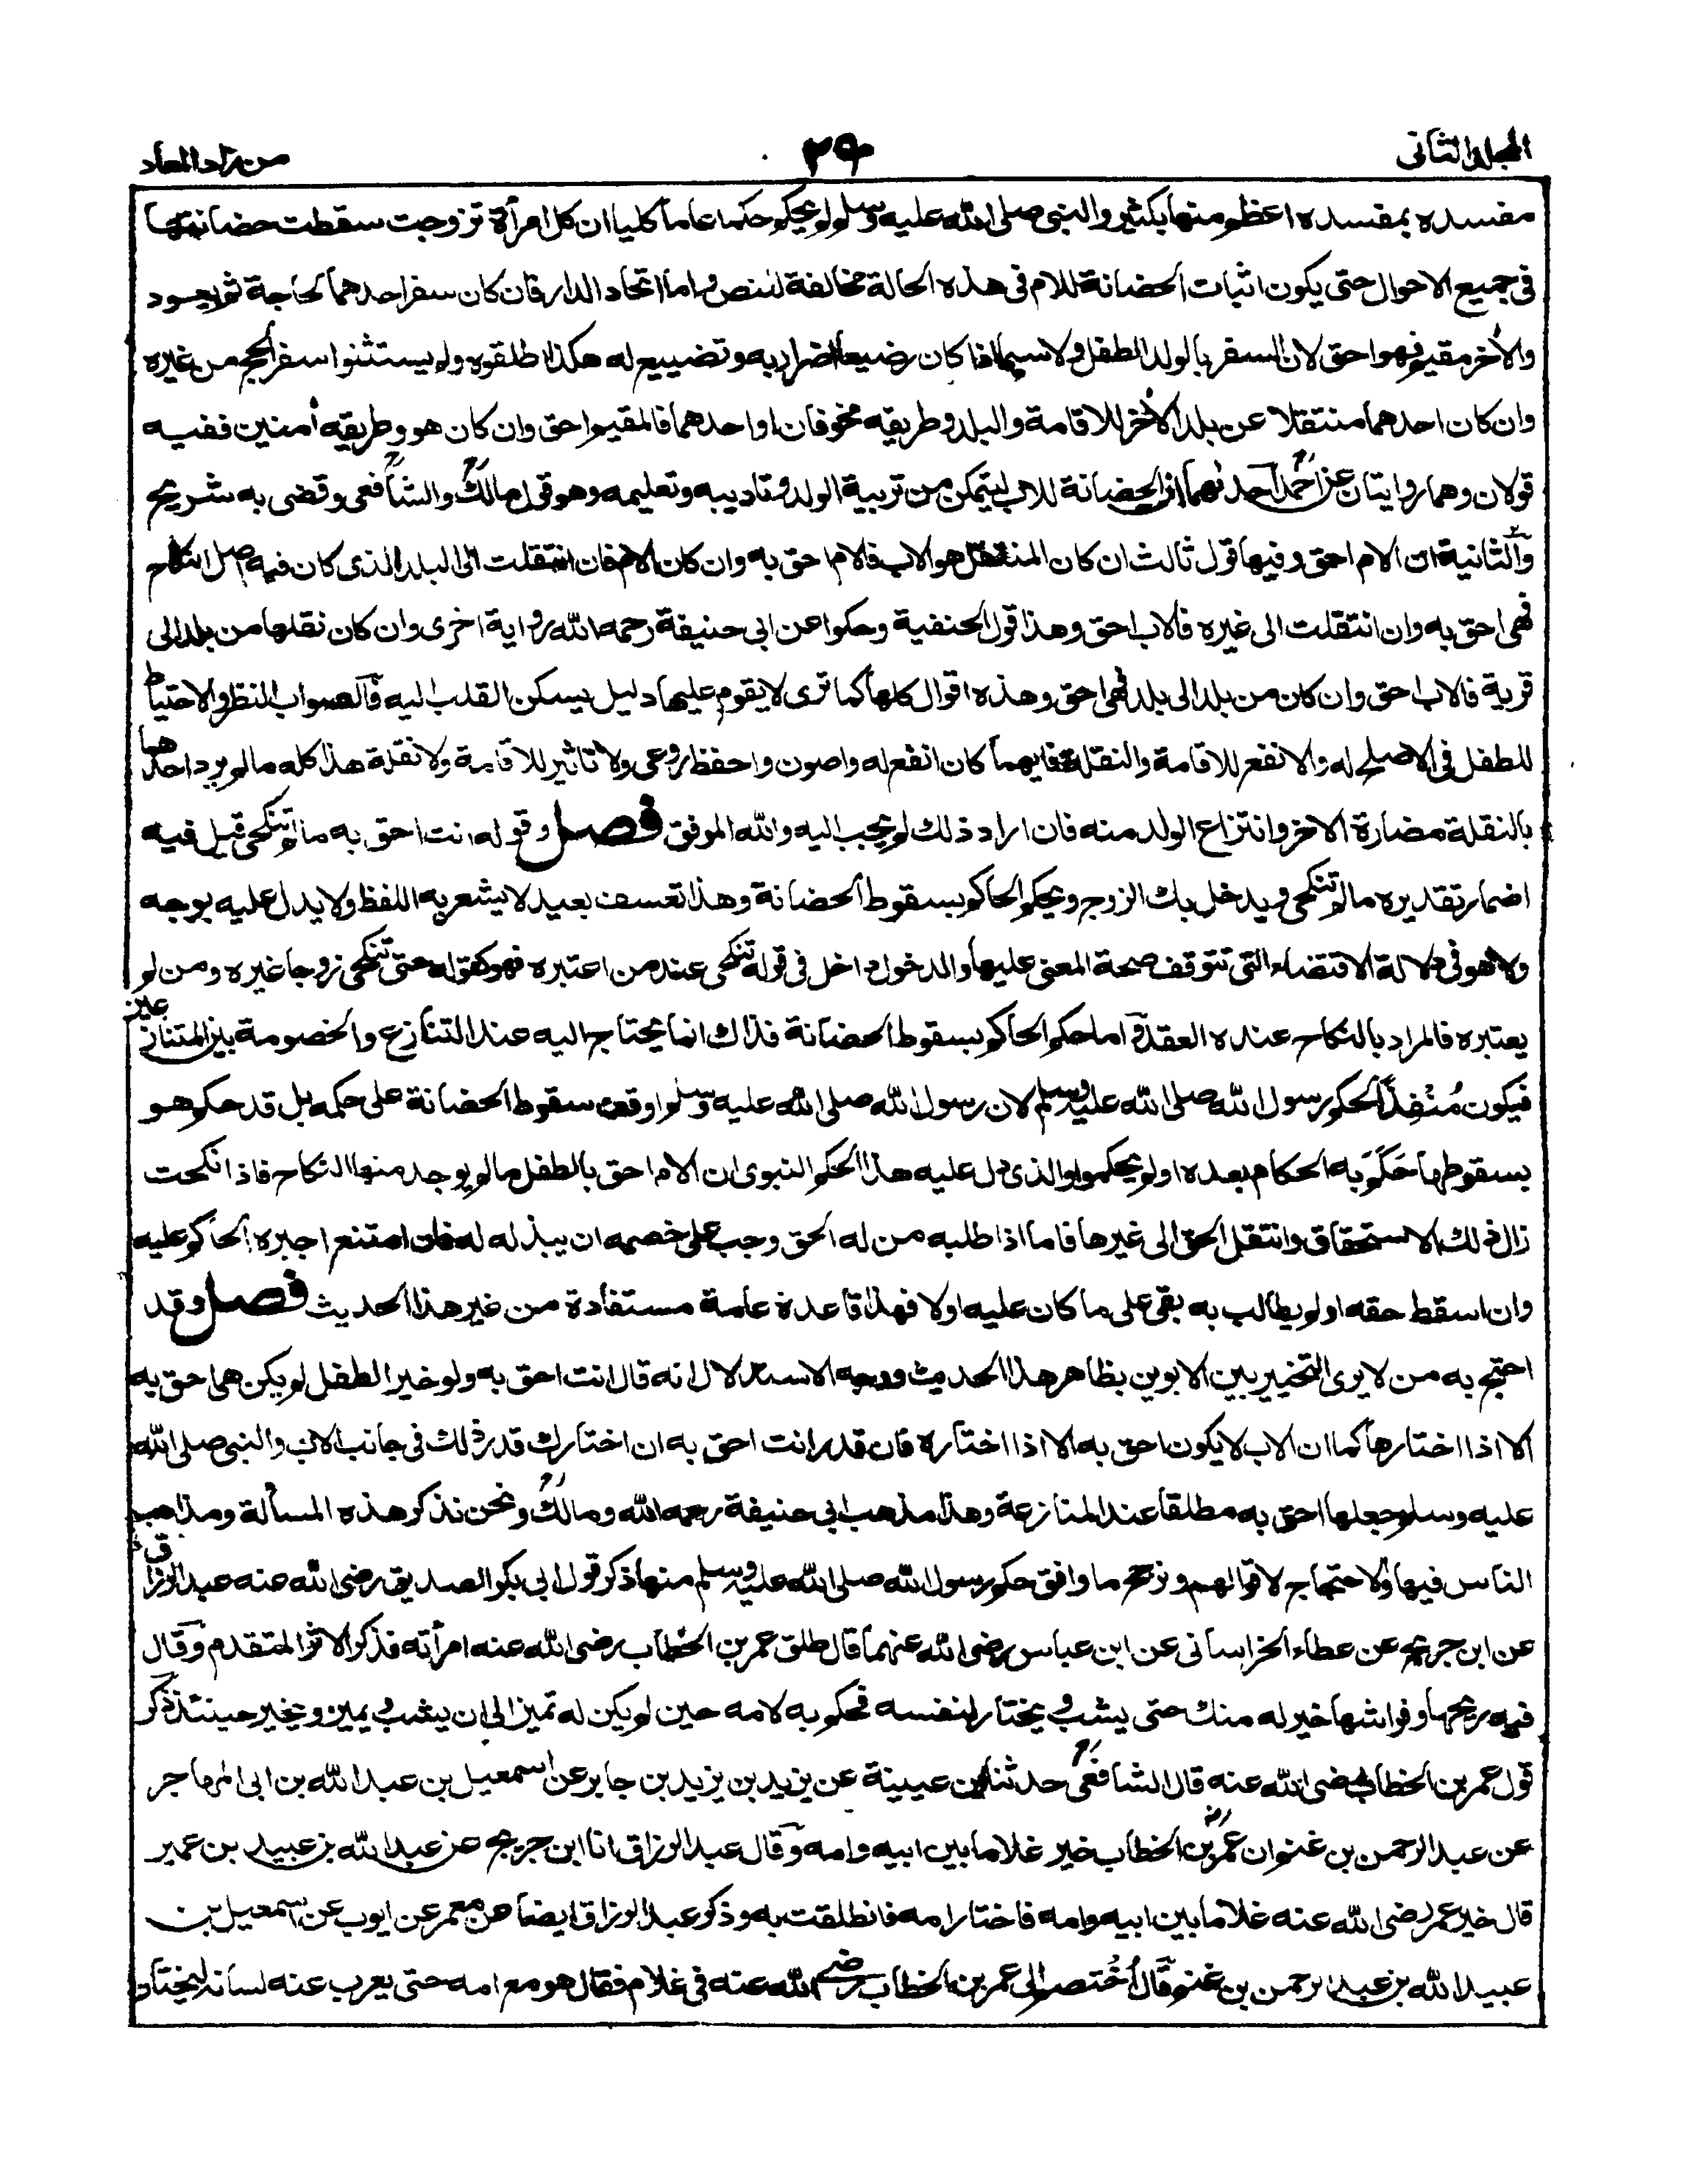 المجلد الثانى
٢٩
من زاد المعاد
مفسدة بمفسدة اعظم منها بكثير والنبى صلى الله عليه وسلم لم يحكم حكما عاما كليا ان كل امرأة تزوجت سقطت حضانتها
فى جميع الاحوال حتى يكون اثبات الحضانة للام فى هذه الحالة مخالفة للنص واما اتحاد الدار فان كان سفر احدهما لحاجة ثم يعود
والأخر مقيم فهو احق لان السفر بالولد الطفل ولا سيما اذا كان رضيعا اضرار به وتضييع له هكذا اطلقوه ولم يستثنوا سفر الحج من غيره
وان كان احدهما منتقلا عن بلد الأخر للاقامة والبلد وطريقه مخوفان او احدهما فالمقيم احق وان كان هو وطريقه أمنين ففيه
قولان وهما روايتان عن احمد احدهما ان الحضانة للاب ليتمكن من تربية الولد وتاديبه وتعليمه وهو قول مالك والشافعى وقضى به شريح
والثانية ان الام احق وفيها قول ثالث ان كان المنتقل هو الاب فالام احق به وان كان الام فان انتقلت الى البلد الذى كان فيه اصل النكاح
فهى احق به وان انتقلت الى غيره فالاب احق وهذا قول الحنفية وحكوا عن ابى حنيفة رحمه الله رواية اخرى وان كان نقلها من بلد الى
قرية فالاب احق وان كان من بلد الى بلد فهى احق وهذه اقوال كلها كما ترى لا يقوم عليها دليل يسكن القلب اليه فالصواب النظر والاحتياط
للطفل فى الاصلح له والانفع للاقامة والنقلة فايهما كان انفع له واصون واحفظ روعى ولا تاثير للاقامة ولا نقلة هذا كله ما لم يرد احدهما
بالنقلة مضارة الاخر وانتزاع الولد منه فان اراد ذلك لم يجب اليه والله الموفق فصل وقوله انت احق به ما لم تنكحى قيل فيه
اضمار تقديره ما لم تنكحى ويدخل بك الزوج ويحكم الحاكم بسقوط الحضانة وهذا تعسف بعيد لا يشعر به اللفظ ولا يدل عليه بوجه
ولا هو فى دلالة الاقتضاء التى تتوقف صحة المعنى عليها والدخول داخل فى قوله تنكحى عند من اعتبره فهو كقوله حتى تنكح زوجا غيره ومن لم
يعتبره فالمراد بالنكاح عنده العقد واما حكم الحاكم بسقوط الحضانة فذاك انما يحتاج اليه عند التنازع والخصومة بين المتنازعين
فيكون مُنْفِذًا لحكم رسول الله صلى الله عليه وسلم لان رسول الله صلى الله عليه وسلم اوقف سقوط الحضانة على حكمه بل قد حكم هو
بسقوطها حَكَمَ به الحكام بعده او لم يحكموا والذى دل عليه هذا الحكم النبوى ان الام احق بالطفل ما لم يوجد منها النكاح فاذا نكحت
زال ذلك الاستحقاق وانتقل الحق الى غيرها فاما اذا طلبه من له الحق وجب على خصمه ان يبذله له فان امتنع اجبره الحاكم عليه
وان اسقط حقه او لم يطالب به بقى على ما كان عليه اولا فهذا قاعدة عامة مستفادة من غير هذا الحديث فصل وقد
احتج به من لا يرى التخيير بين الابوين بظاهر هذا الحديث ووجه الاستدلال انه قال انت احق به ولو خير الطفل لم يكن هى احق به
الا اذا اختارها كما ان الاب لا يكون احق به الا اذا اختاره فان قدر انت احق به ان اختارك قدر ذلك فى جانب الاب والنبى صلى الله
عليه وسلم جعلها احق به مطلقا عند المنازعة وهذا مذهب ابى حنيفة رحمه الله ومالك ونحن نذكر هذه المسألة ومذاهب
الناس فيها والاحتجاج لاقوالهم ونرجح ما وافق حكم رسول الله صلى الله عليه وسلم منها ذكر قول ابى بكر الصديق رضى الله عنه عبد الرزاق
عن ابن جريج عن عطاء الخراسانى عن ابن عباس رضى الله عنهما قال طلق عمر بن الخطاب رضى الله عنه امرأته فذكر الاثر المتقدم وقال
فيه ريحها وفراشها خير له منك حتى يشب ويختار لنفسه فحكم به لامه حين لم يكن له تميز الى ان يشب ويميز ويخير حينئذ ذكر
قول عمر بن الخطاب رضى الله عنه قال الشافعى حدثنا ابن عيينة عن يزيد بن يزيد بن جابر عن اسمعيل بن عبد الله بن ابى المهاجر
عن عبد الرحمن بن غنم ان عمر بن الخطاب خير غلاما بين ابيه وامه وقال عبد الرزاق انا ابن جريج عن عبد الله بن عبيد بن عمير
قال خير عمر رضى الله عنه غلاما بين ابيه وامه فاختار امه فانطلقت به وذكر عبد الرزاق ايضا عن معمر عن ايوب عن اسمعيل بن
عبيد الله بن عبد الرحمن بن غنم قال أُختصم الى عمر بن الخطاب رضى الله عنه فى غلام فقال هو مع امه حتى يعرب عنه لسانه ليختار